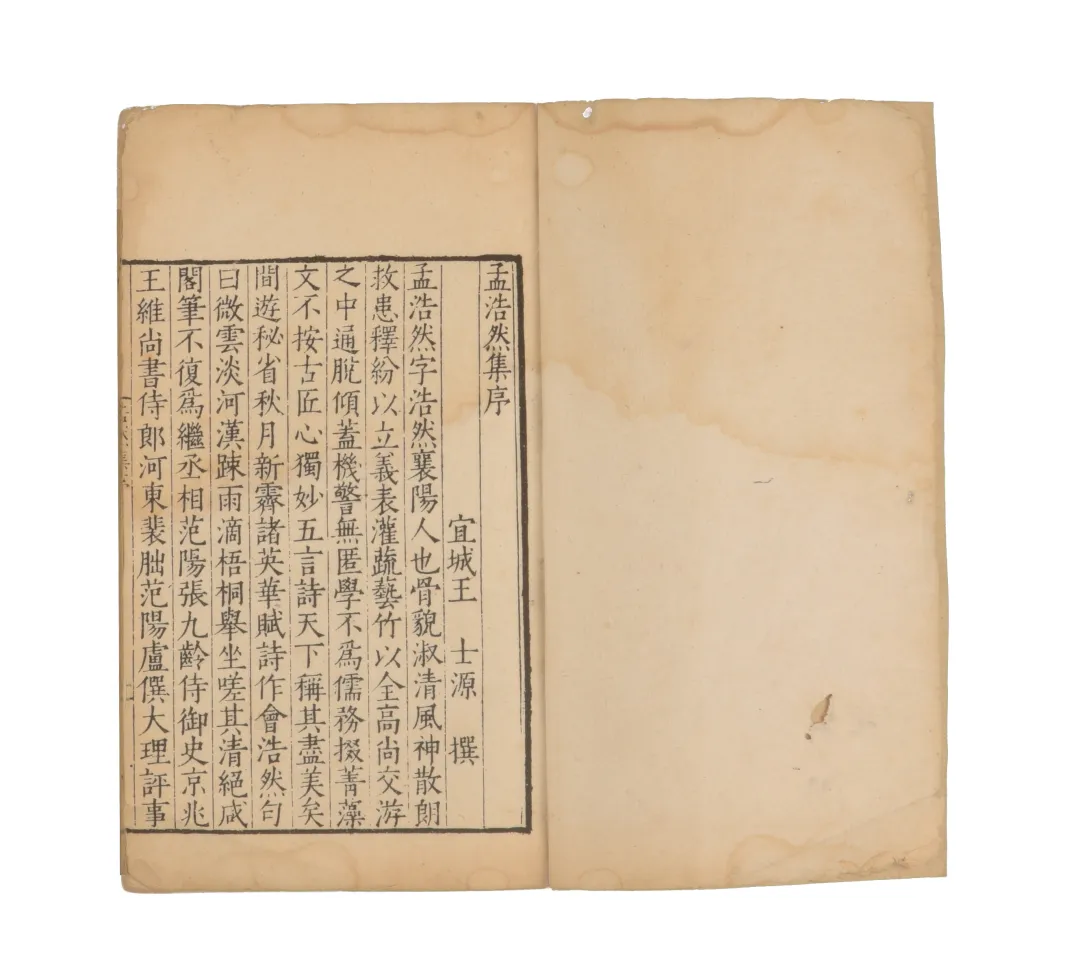 孟浩然集序
宜城王士源撰
孟浩然字浩然襄陽人也骨貌淑清風神散朗
救患釋紛以立義表灌蔬藝竹以全高尚交游
之中通脫傾蓋機警無匿學不爲儒務掇菁藻
文不按古匠心獨妙五言詩天下稱其盡美矣
間遊秘省秋月新霽諸英華賦詩作會浩然句
曰微雲淡河漢踈雨滴梧桐舉坐嗟其清絕咸
閣筆不復爲繼丞相范陽張九齡侍御史京兆
王維尚書侍郎河東裴朏范陽盧僎大理評事